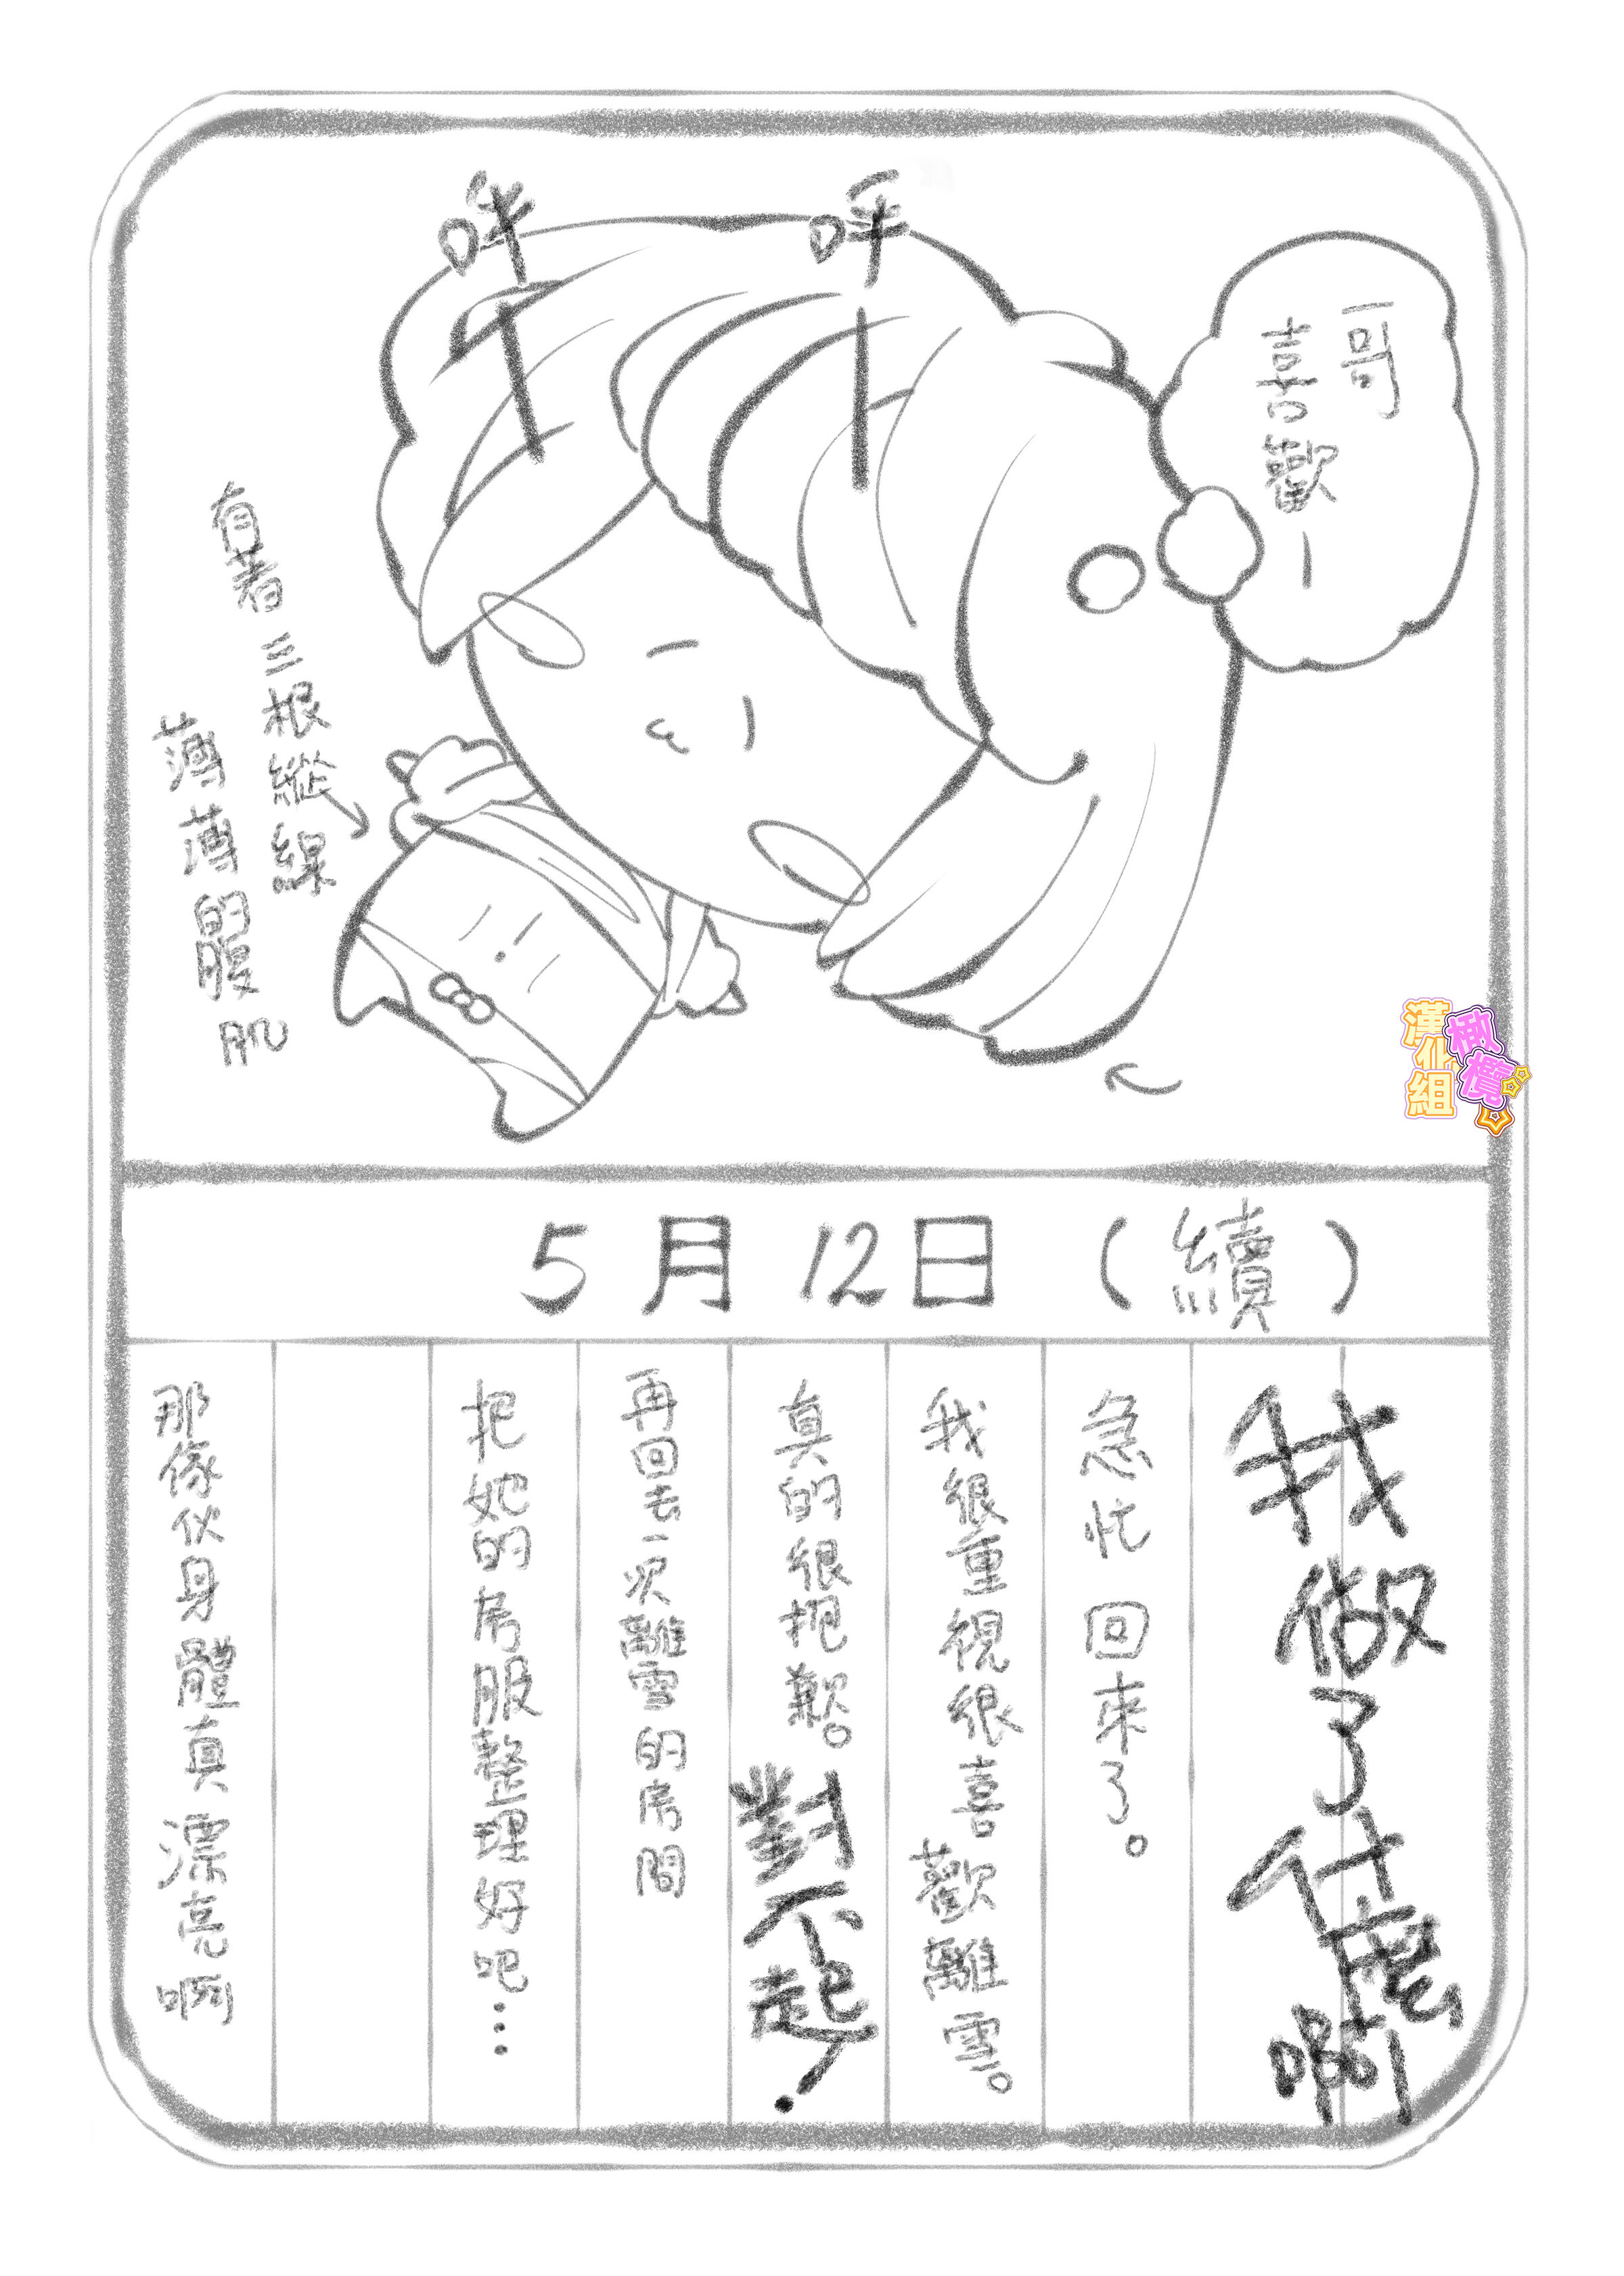 哥
喜歡ー
呼ー
呼ー
有著三根縱線
薄薄的腹肌
橄欖
漢化組
5月12日（續）
我做了什麼啊
急忙回來了。
我很重視很喜歡離雪。
真的很抱歉。對不起！
再回去一次離雪的房間
把她的衣服整理好吧…
那傢伙身體真漂亮啊